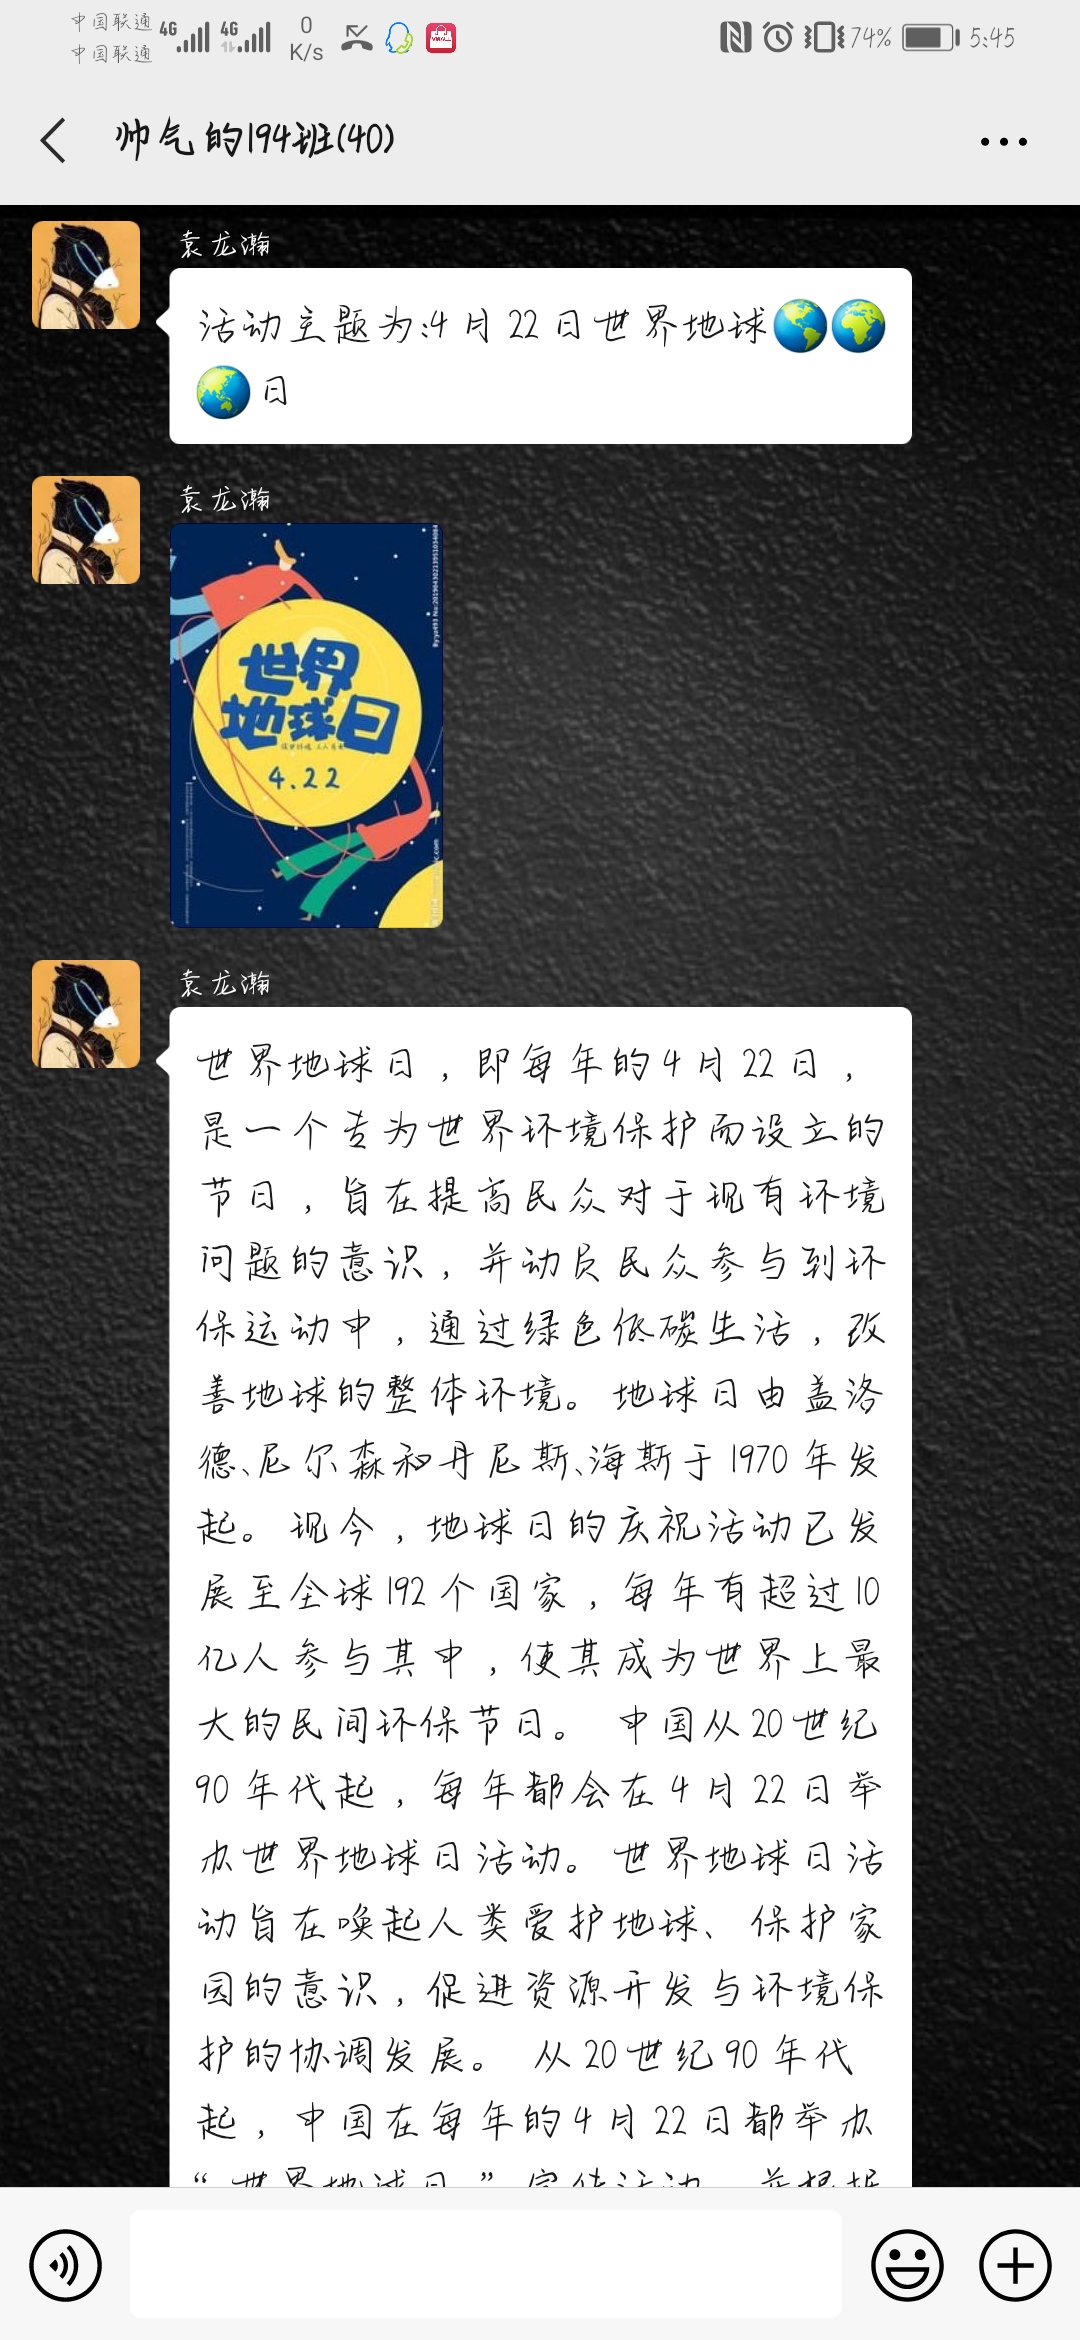 中国联通 4G 4G 0 74% 5:45
中国联通 K/s
帅气的194班(40)
袁龙瀚
活动主题为:4月22日世界地球🌎🌍
🌏日
袁龙瀚
世界
地球日
4.22
袁龙瀚
世界地球日，即每年的4月22日，
是一个专为世界环境保护而设立的
节日，旨在提高民众对于现有环境
问题的意识，并动员民众参与到环
保运动中，通过绿色低碳生活，改
善地球的整体环境。地球日由盖洛
德、尼尔森和丹尼斯、海斯于1970年发
起。现今，地球日的庆祝活动已发
展至全球192个国家，每年有超过10
亿人参与其中，使其成为世界上最
大的民间环保节日。 中国从20世纪
90年代起，每年都会在4月22日举
办世界地球日活动。世界地球日活
动旨在唤起人类爱护地球、保护家
园的意识，促进资源开发与环境保
护的协调发展。 从20世纪90年代
起，中国在每年的4月22日都举办
“世界地球日”宣传活动，并根据